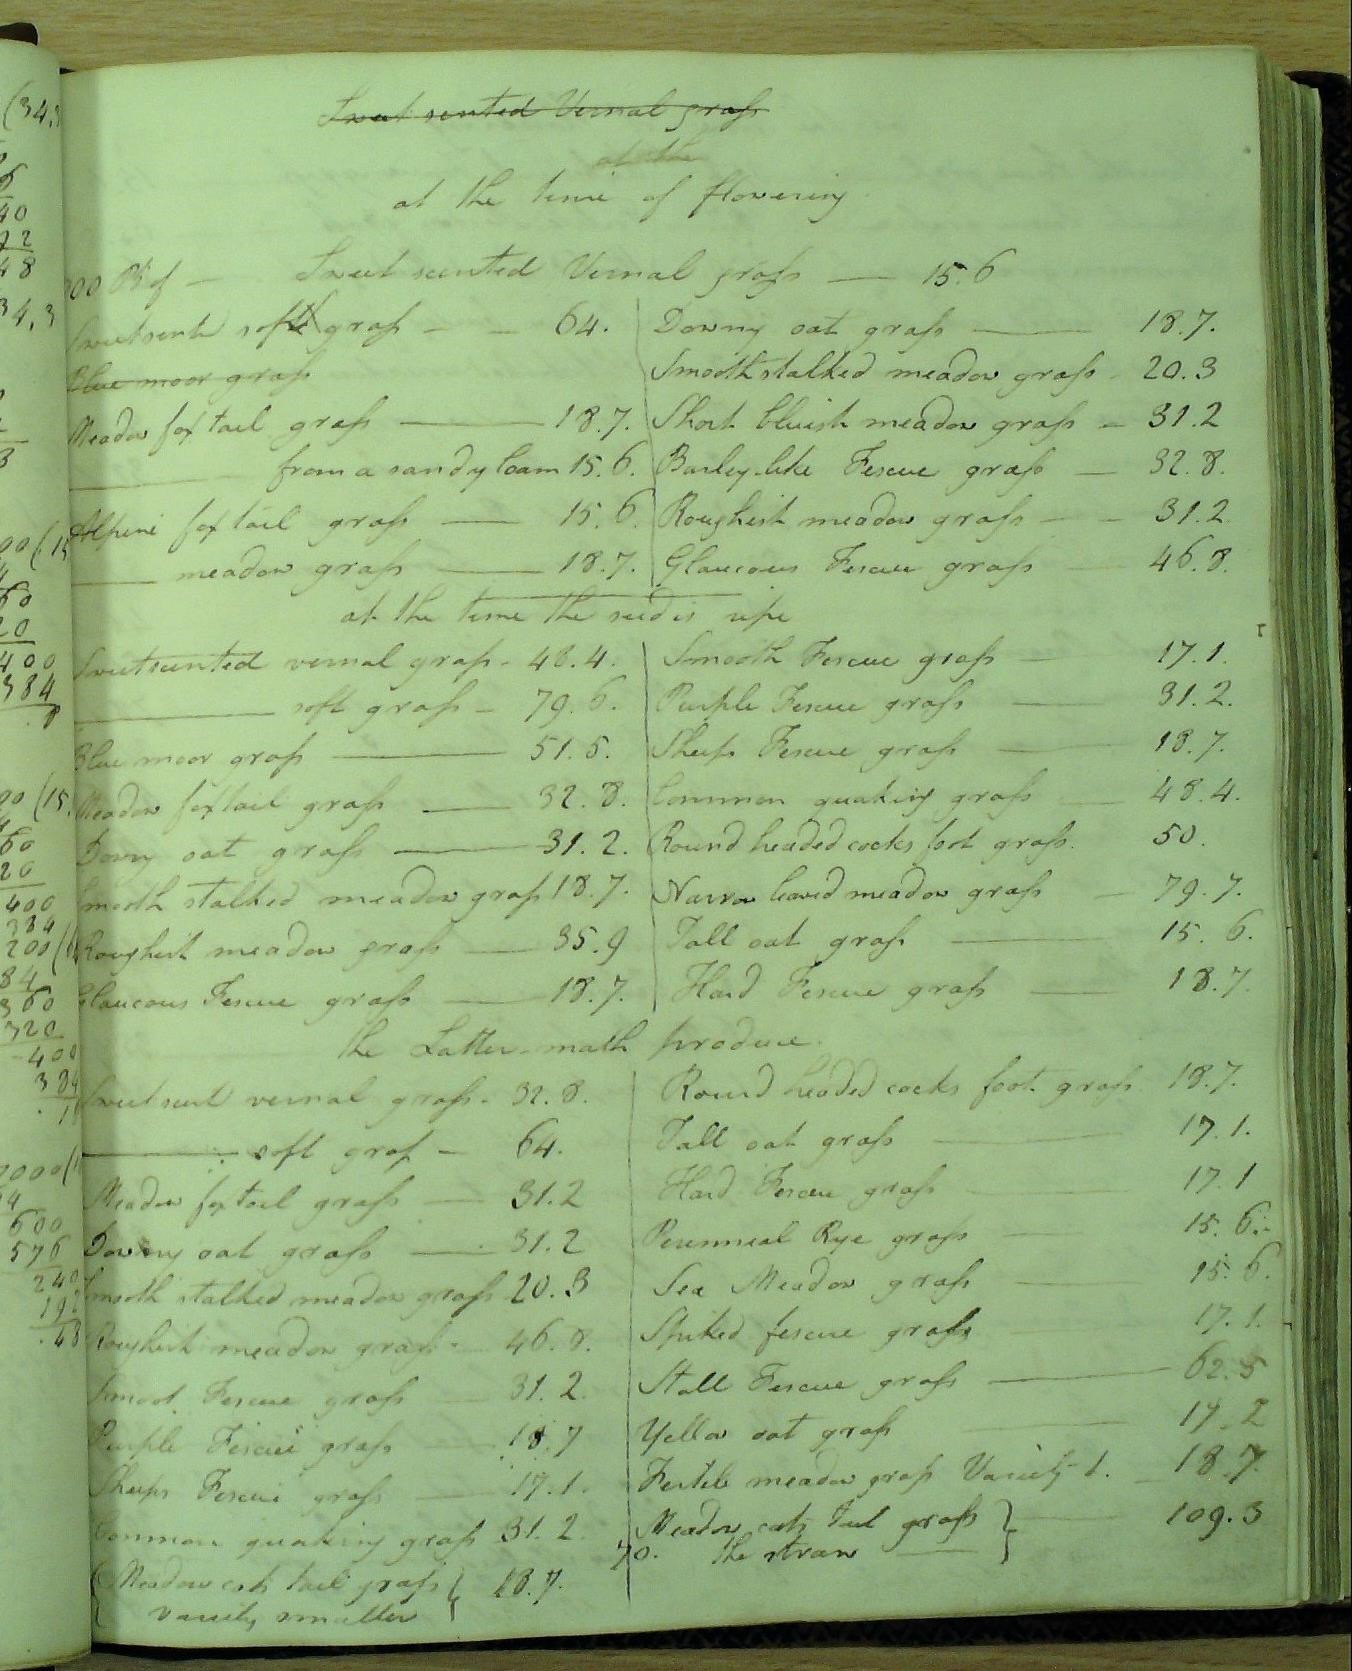 Sweet scented Vernal grass
at the
at the time of flowering
Sweet scented Vernal grass — 15.6
Sweet scent soft grass - - 64.
Blue moor grass
Meadow fox tail grass — 18.7.
— from a sandy loam 15.6.
Alpine fox tail grass — 15.6.
— meadow grass — 18.7.
Downy oat grass — 18.7.
Smooth stalked meadow grass - 20.3
Short bluish meadow grass - 31.2
Barley-like Fescue grass — 32.8.
Roughish meadow grass - - 31.2
Glaucous Fescue grass — 46.8.
at the time the seed is ripe
Sweet scented vernal grass - 48.4.
— soft grass - 79.6.
Blue moor grass — 51.5.
Meadow fox tail grass — 32.8.
Downy oat grass — 31.2.
Smooth stalked meadow grass 18.7.
Roughish meadow grass — 35.9
Glaucous Fescue grass — 18.7.
Smooth Fescue grass — 17.1.
Purple Fescue grass — 31.2.
Sheeps Fescue grass — 18.7.
Common quaking grass — 48.4.
Round headed cocks foot grass. 50.
Narrow leaved meadow grass — 79.7.
Tall oat grass — 15.6.
Hard Fescue grass — 18.7.
the Latter-math produce.
Sweet scent vernal grass - 32.8.
— soft grass - 64.
Meadow fox tail grass — 31.2
Downy oat grass — 31.2
Smooth stalked meadow grass 20.3
Roughish meadow grass - 46.8.
Smoot. Fescue grass — 31.2.
Purple Fescue grass — 18.7
Sheeps Fescue grass — 17.1.
Common quaking grass 31.2.
Meadow cats tail grass 18.7.
variety smaller
Round headed cocks foot grass 18.7.
Tall oat grass — 17.1.
Hard Fescue grass — 17.1
Perennial Rye grass — 15.6.
Sea Meadow grass — 15.6.
Spiked fescue grass — 17.1.
Stall Fescue grass — 62.5
Yellow oat grass — 17.2
Fertile meadow grass Variety 1. - 18.7.
Meadow cats tail grass — 109.3
70. the straw —